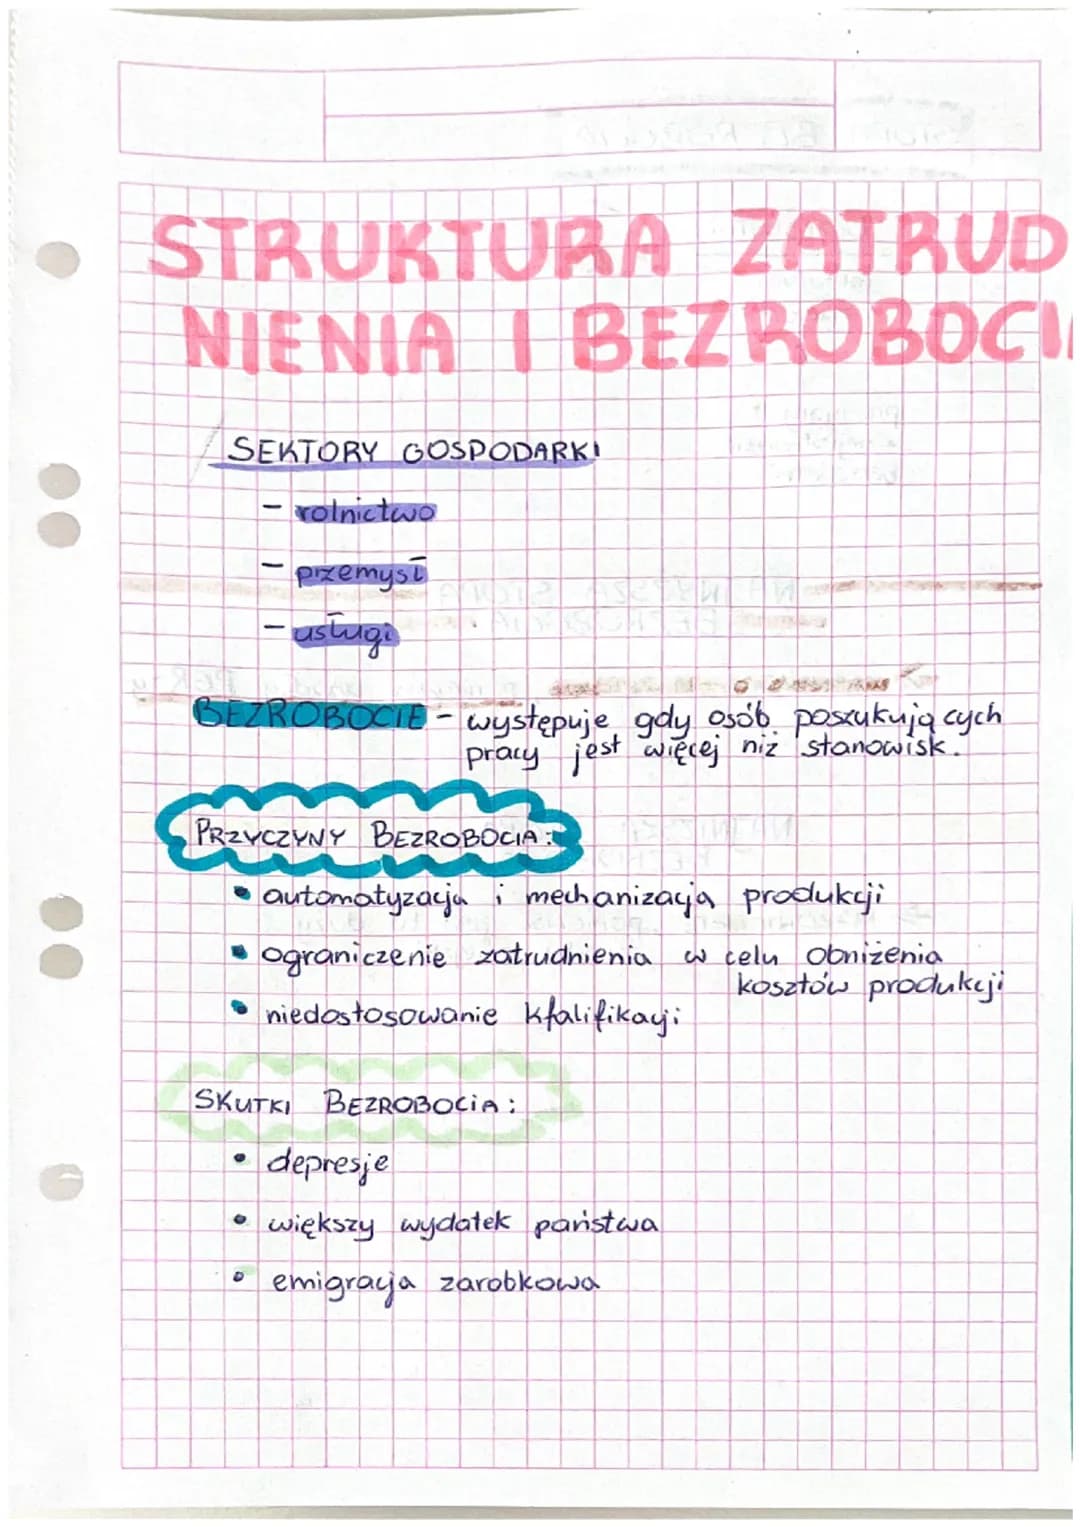 STRUKTURA ZATRUD
NIENIA I BEZROBOCI
SEKTORY GOSPODARKI
- rolnictwo
- przemysł
- usługi
BEZROBOCIE - występuje gdy osób poszukujących
pracy jest więcej niż stanowisk.
PRZYCZYNY BEZROBOCIA:
• automatyzacja i mechanizacja produkcji
• ograniczenie zatrudnienia w celu obniżenia
kosztów produkcji
• niedostosowanie kfalifikacji
SKUTKI BEZROBOCIA:
• depresje
• większy wydatek państwa
• emigracja zarobkowa